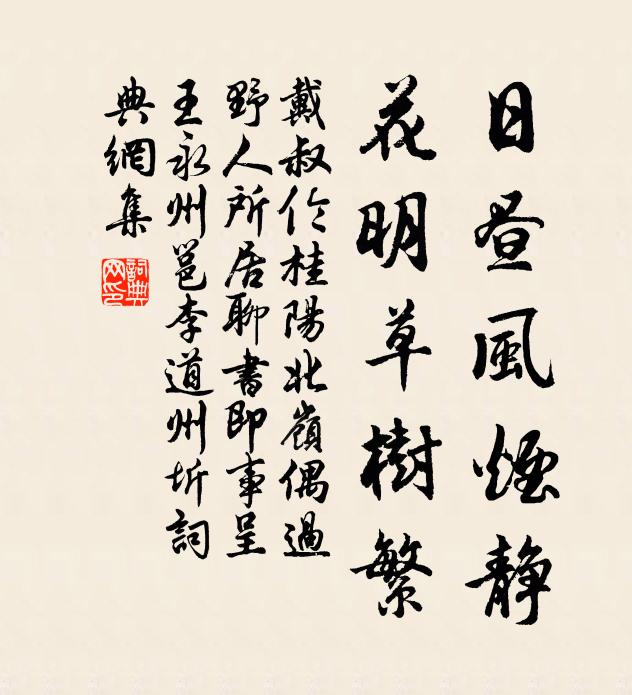 日昼風煙静
花明草樹繁
戴叔伦桂陽北嶺偶過
野人所居聊書即事呈
王永州邕李道州圻詞
典網集
詞典
网印